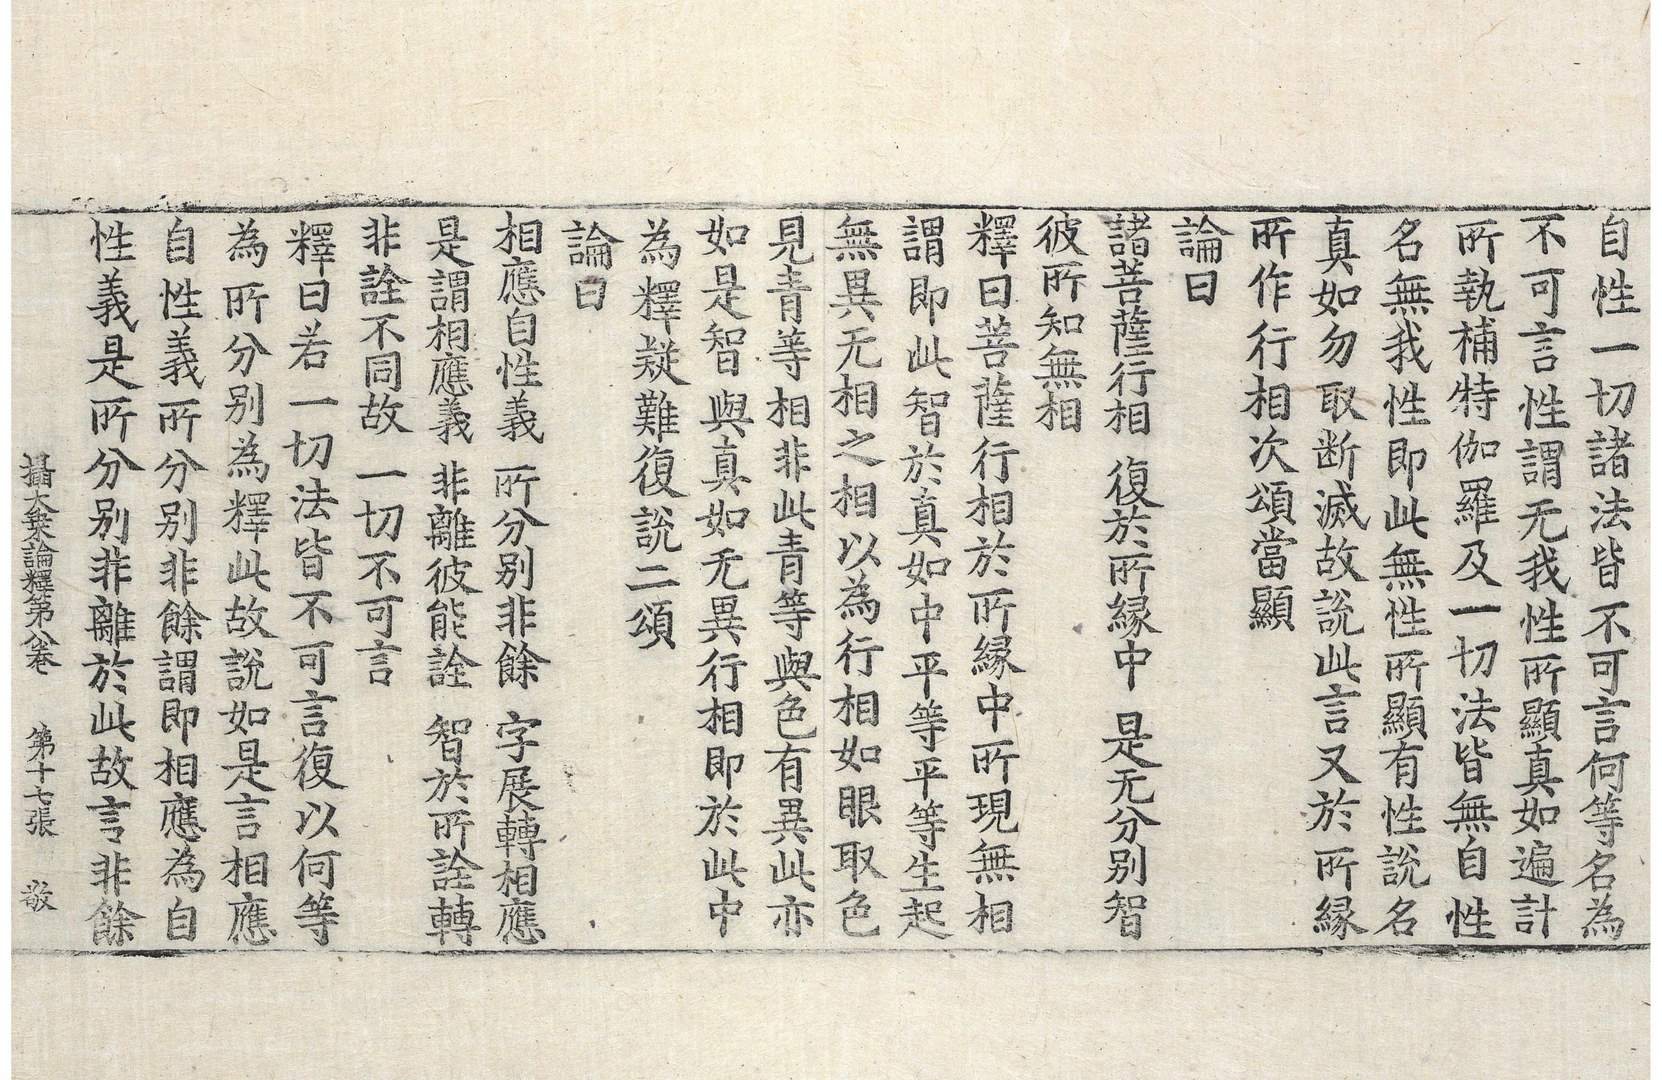 自性一切諸法皆不可言何等名為
不可言性謂无我性所顯真如遍計
所執補特伽羅及一切法皆無自性
名無我性即此無性所顯有性說名
真如勿取断滅故說此言又於所縁
所作行相次頌當顯
論曰
諸菩薩行相 復於所縁中 是无分别智
彼所知無相
釋曰菩薩行相於所縁中所現無相
謂即此智於真如中平等平等生起
無異无相之相以為行相如眼取色
見青等相非此青等與色有異此亦
如是智與真如无異行相即於此中
為釋疑難復說二頌
論曰
相應自性義 所分别非餘 字展轉相應
是謂相應義 非離彼能詮 智於所詮轉
非詮不同故 一切不可言
釋曰若一切法皆不可言復以何等
為所分别為釋此故說如是言相應
自性義所分别非餘謂即相應為自
性義是所分别非離於此故言非餘
攝大乗論釋第八卷 第十七張 敬